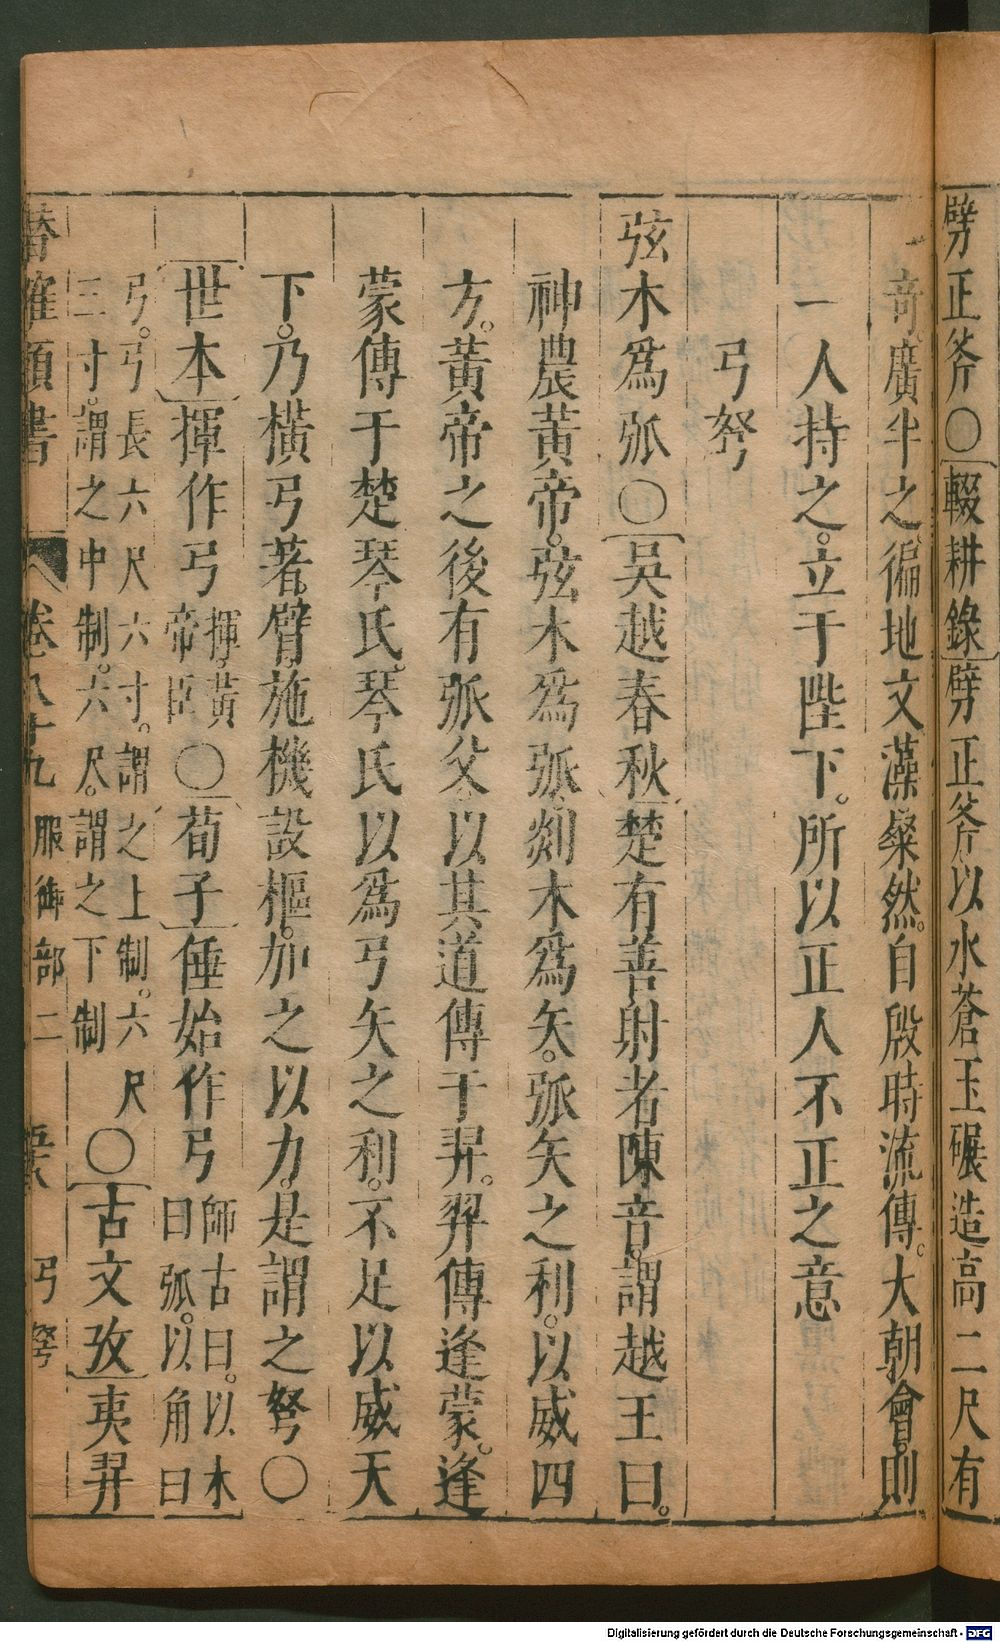 劈正斧〇輟耕錄劈正斧以水蒼玉碾造高二尺有
奇廣半之徧地文藻粲然自殷時流傳大朝會則
一人持之立于陛下所以正人不正之意
弓弩
弦木爲弧〇吳越春秋楚有善射者陳音謂越王曰
神農黃帝弦木爲弧剡木爲矢弧矢之利以威四
方黃帝之後有弧父以其道傳于羿羿傳逢蒙逢
蒙傳于楚琴氏琴氏以爲弓矢之利不足以威天
下乃橫弓著臂施機設樞加之以力是謂之弩〇
世本揮作弓揮黃帝臣〇荀子倕始作弓師古曰以木曰弧以角曰
弓弓長六尺六寸謂之上制六尺三寸謂之中制六尺謂之下制〇古文攷夷羿
類書 卷八十九 服御部二 弓弩
Digitalisierung gefördert durch die Deutsche Forschungsgemeinschaft - DFG